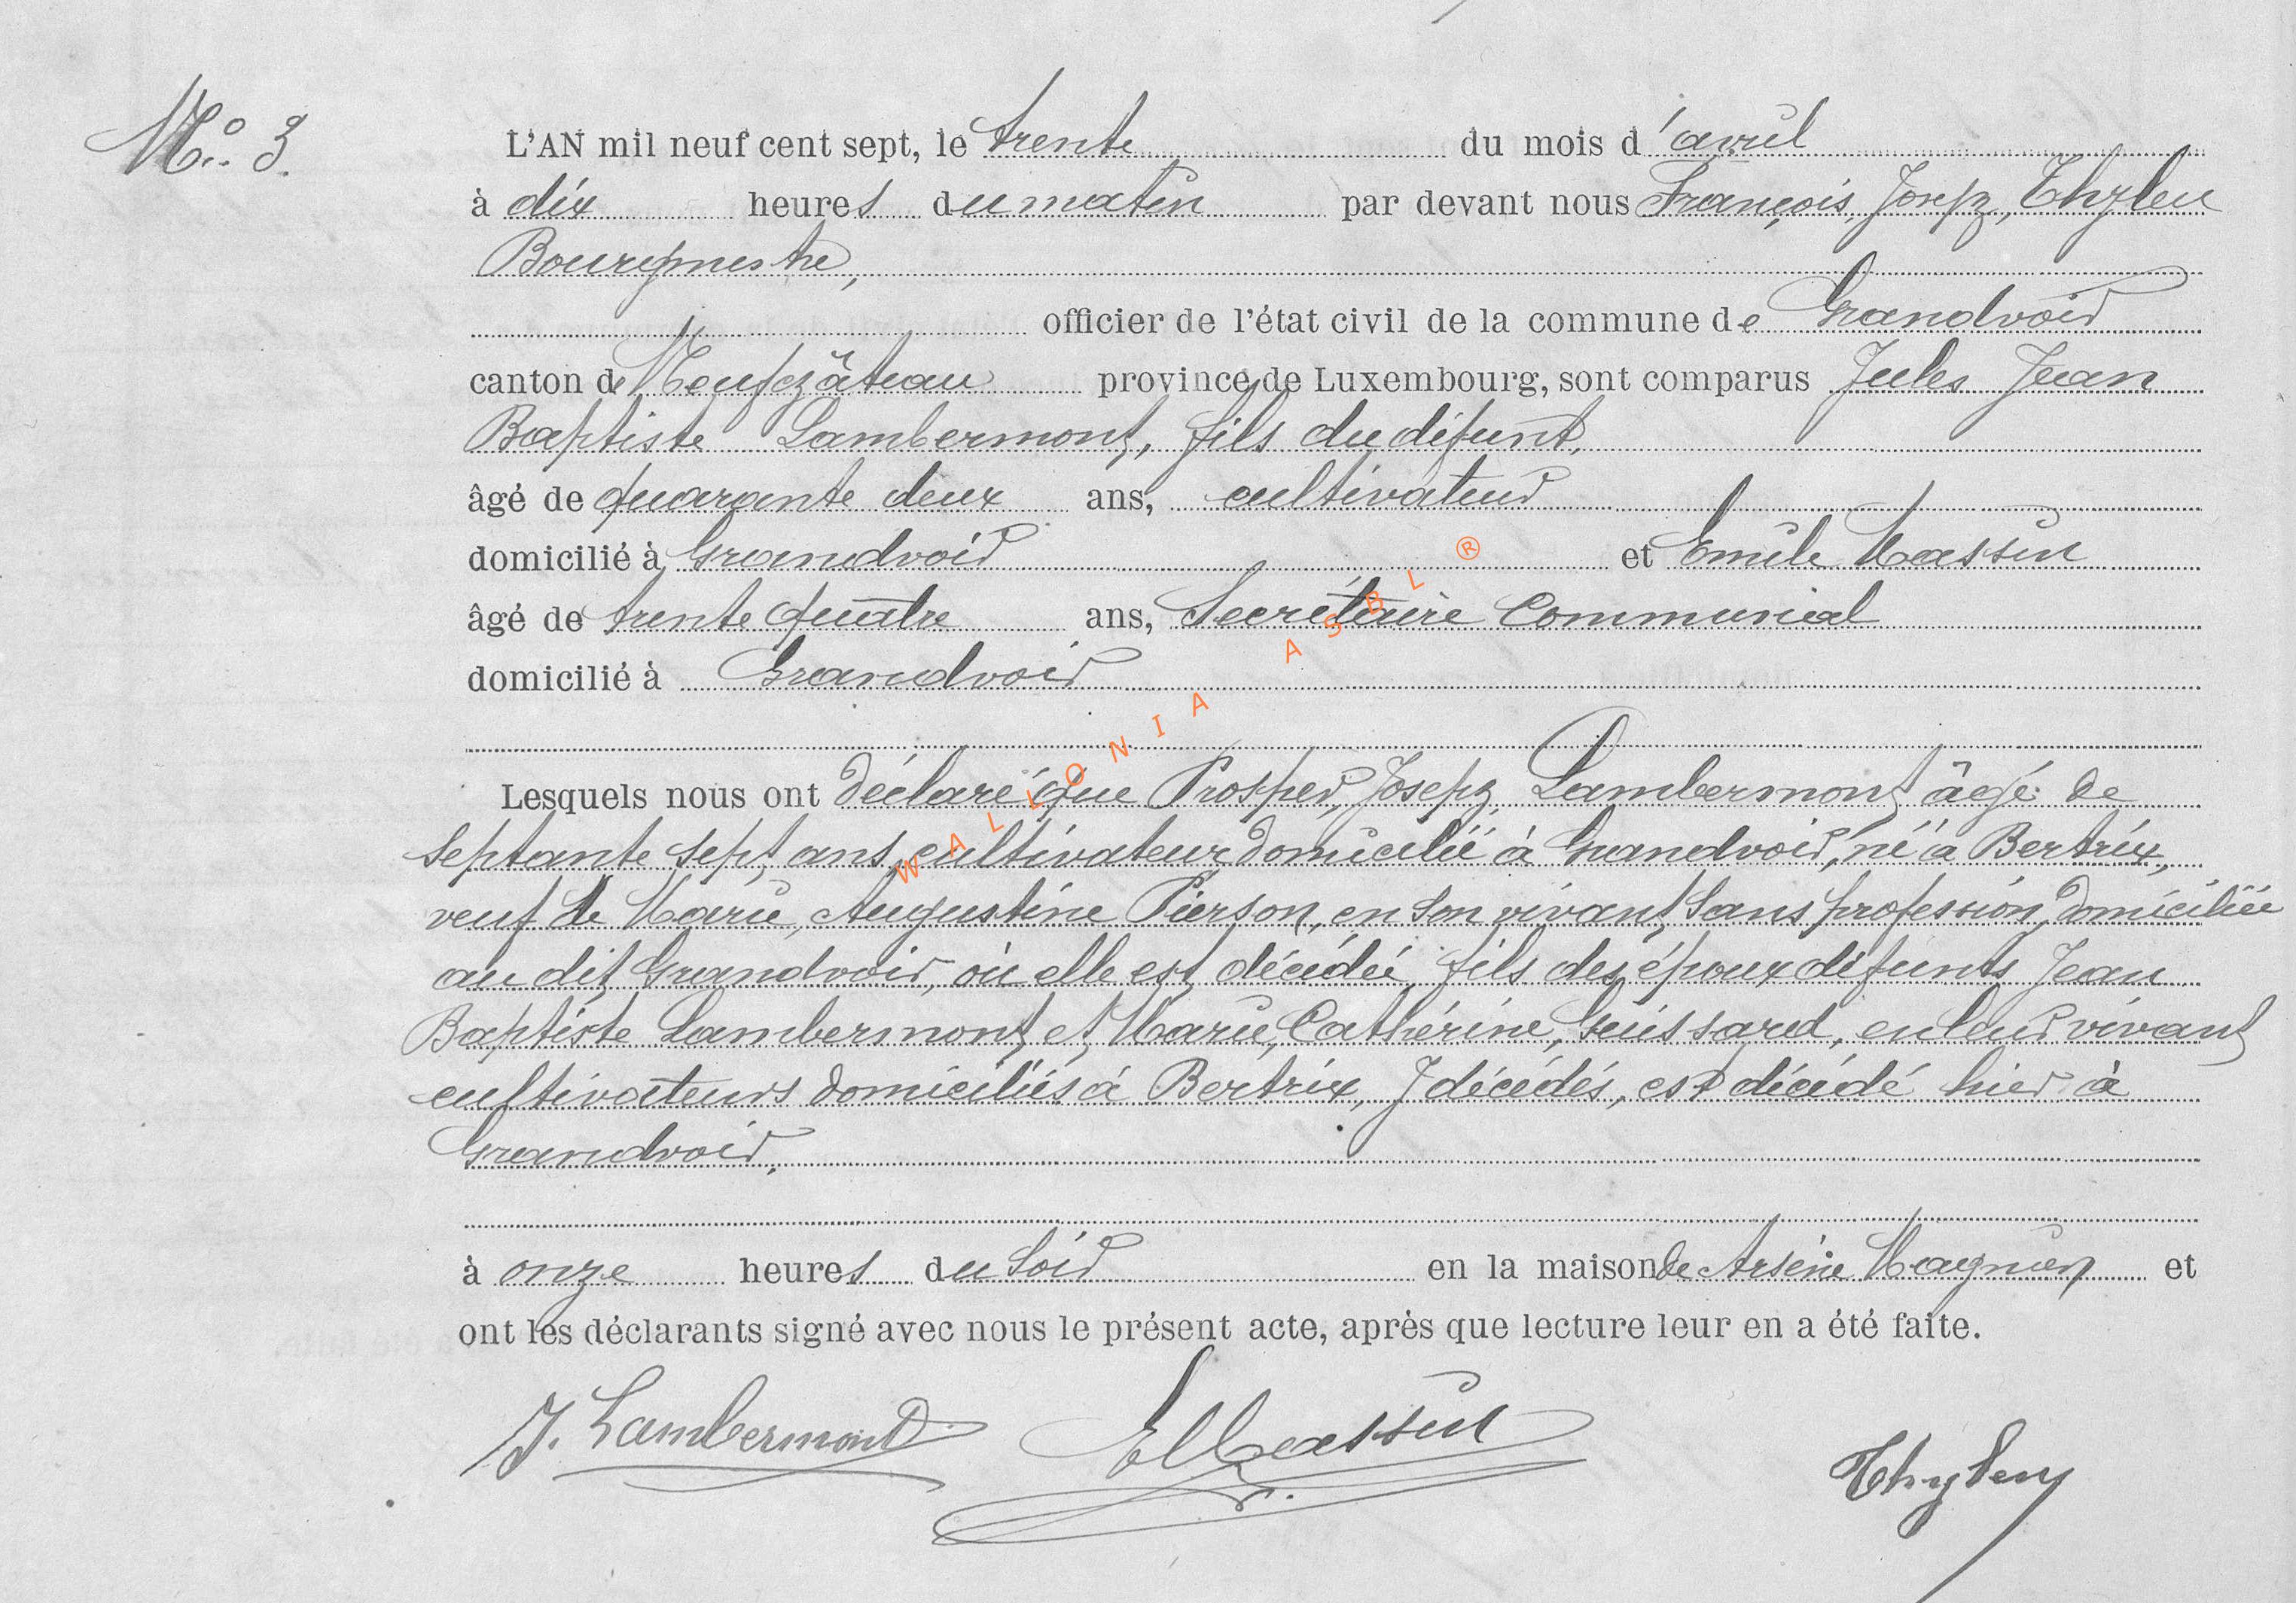 N° 3.
L'AN mil neuf cent sept, le trente du mois d'avril
à dix heures du matin par devant nous François, Joseph, Thyleu
Bourgmestre,
officier de l'état civil de la commune de Grandvoir
canton de Neufchâteau province de Luxembourg, sont comparus Jules Jean
Baptiste Lambermont, fils du défunt,
âgé de quarante deux ans, cultivateur
domicilié à Grandvoir et Emile Massin
âgé de trente quatre ans, Secrétaire Communal
domicilié à Grandvoir
Lesquels nous ont déclaré que Prosper, Joseph, Lambermont âgé de
septante sept ans, cultivateur domicilié à Grandvoir, né à Bertrix,
veuf de Marie, Augustine Pierson, en son vivant sans profession, domiciliée
au dit Grandvoir, où elle est décédée, fils des époux défunts Jean
Baptiste Lambermont et Marie, Cathérine, Guissard, en leur vivant
cultivateurs domiciliés à Bertrix, y décédés, est décédé hier à
Grandvoir,
à onze heures du soir en la maison de Arsène Magnien et
ont les déclarants signé avec nous le présent acte, après que lecture leur en a été faite.
J. Lambermont EMassin Thyleu
WALLONIA ASBL ®